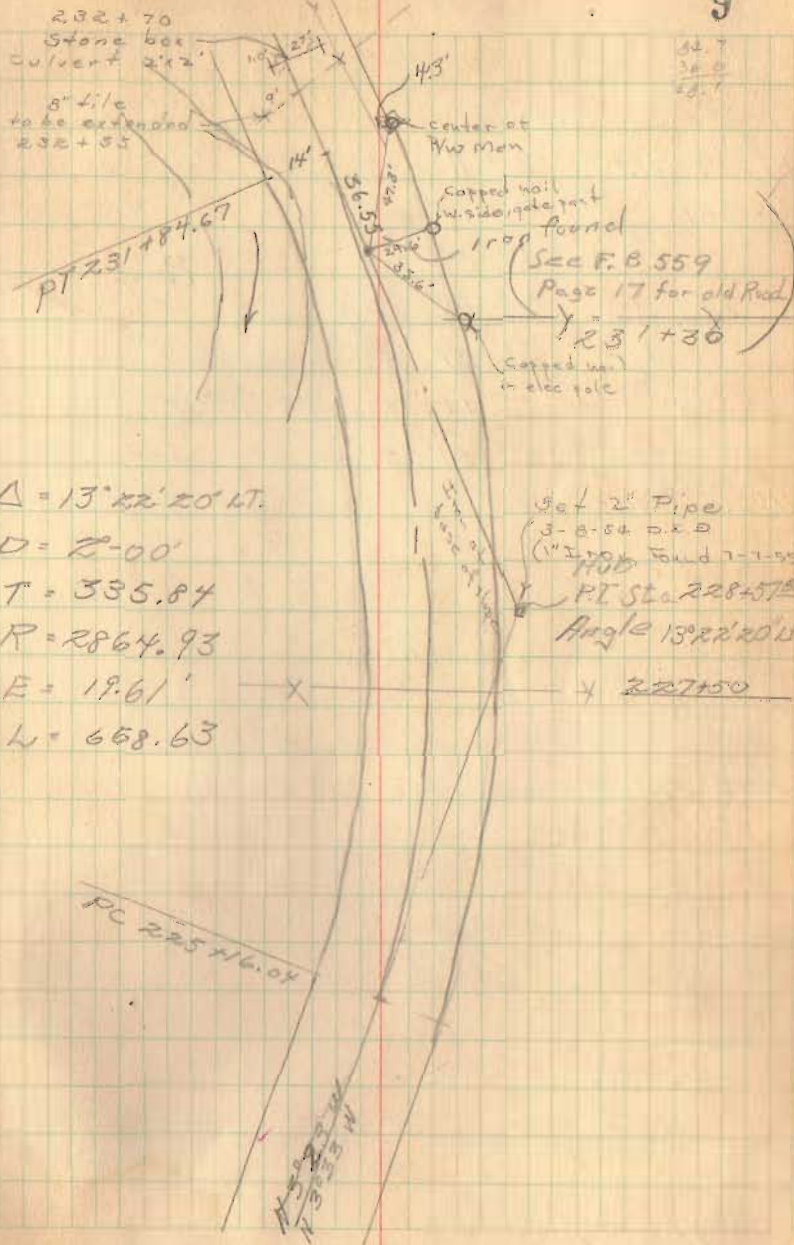 9
232 + 70
Stone box
Culvert 2'x2'
8" tile
to be extended
232 + 55
14'
43'
Center of
N/W Mon
Capped nail
W. side gate post
Iron found
36.55
See F.B 559
Page 17 for old Road
231+30
Capped nail
in elec pole
PT 231+84.67
Δ = 13° 22' 20" LT.
D = 2°-00'
T = 335.84
R = 2864.93
E = 19.61'
L = 668.63
Set 2" Pipe
3-8-54 D.E.D
(1" Iron Found 7-7-55
Hub
P.I Sta 228+51
Angle 13°22'20" Lt
227+50
PC 225+16.04
N 3°23' W
N 3°33' W